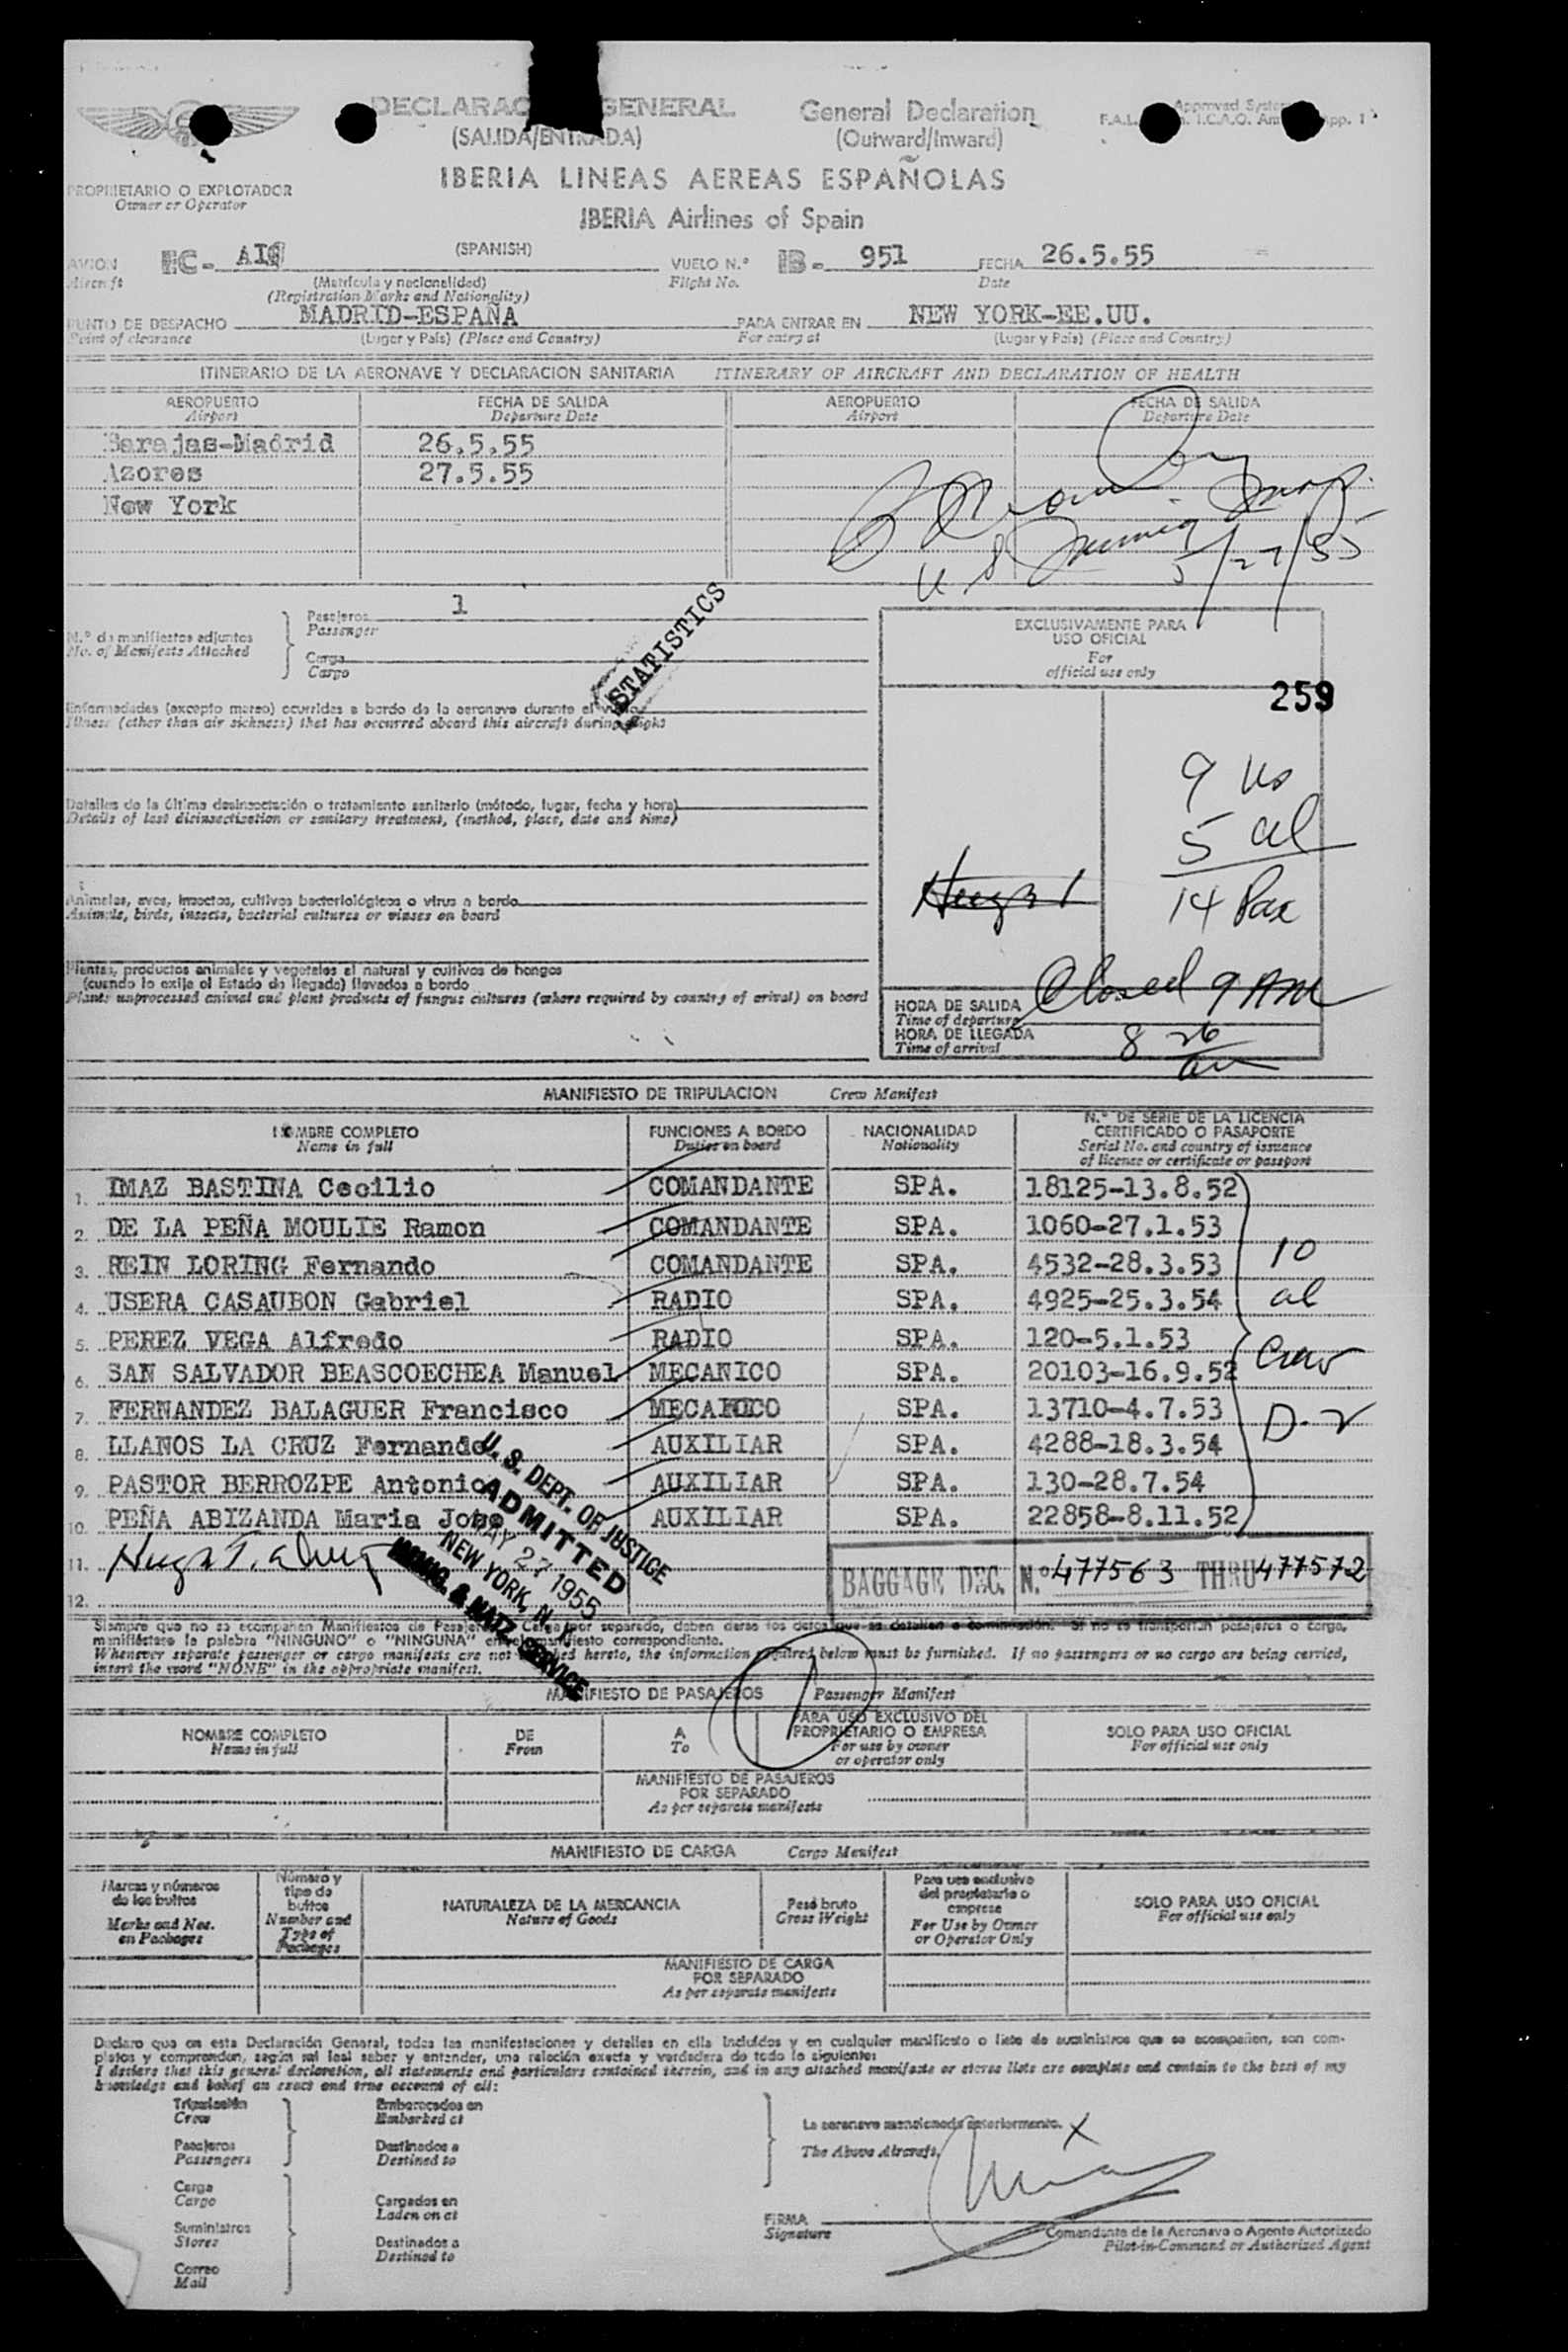 DECLARAC GENERAL
General Declaration
(SALIDA/ENTRADA)
(Outward/Inward)
Approved System
F.A.L. I.C.A.O. App. 1
IBERIA LINEAS AEREAS ESPAÑOLAS
PROPRIETARIO O EXPLOTADOR
Owner or Operator
IBERIA Airlines of Spain
AVION EC- (SPANISH) VUELO N.º IB- 951 FECHA 26.5.55
Aircraft (Matrícula y nacionalidad) Flight No. Date
(Registration Marks and Nationality)
PUNTO DE DESPACHO MADRID-ESPAÑA PARA ENTRAR EN NEW YORK-EE.UU.
Point of clearance (Lugar y País) (Place and Country) For entry at (Lugar y País) (Place and Country)
ITINERARIO DE LA AERONAVE Y DECLARACION SANITARIA ITINERARY OF AIRCRAFT AND DECLARATION OF HEALTH
AEROPUERTO FECHA DE SALIDA AEROPUERTO FECHA DE SALIDA
Airport Departure Date Airport Departure Date
Barajas-Madrid 26.5.55
Azores 27.5.55
New York
U S Immig 5/27/55
N.º de manifiestos adjuntos
No. of Manifests Attached
Pasajeros 1
Passenger
Carga
Cargo
STATISTICS
EXCLUSIVAMENTE PARA
USO OFICIAL
For
official use only
259
Enfermedades (excepto mareo) ocurridas a bordo de la aeronave durante el vuelo
Illness (other than air sickness) that has occurred aboard this aircraft during flight
9 US
5 al
14 Pax
Detalles de la última desinsectación o tratamiento sanitario (método, lugar, fecha y hora)
Details of last disinsectisation or sanitary treatment, (method, place, date and time)
Animales, aves, insectos, cultivos bacteriológicos o virus a bordo
Animals, birds, insects, bacterial cultures or viruses on board
Plantas, productos animales y vegetales al natural y cultivos de hongos
(cuando lo exija el Estado de llegada) llevados a bordo
Plants unprocessed animal and plant products of fungus cultures (where required by country of arival) on board
Closed 9 AM
HORA DE SALIDA
Time of departure
HORA DE LLEGADA
Time of arrival
8 26
am
MANIFIESTO DE TRIPULACION Crew Manifest
NOMBRE COMPLETO FUNCIONES A BORDO NACIONALIDAD N.º DE SERIE DE LA LICENCIA
CERTIFICADO O PASAPORTE
Name in full Duties on board Nationality Serial No. and country of issuance
of license or certificate or passport
1. IMAZ BASTINA Cecilio COMANDANTE SPA. 18125-13.8.52
2. DE LA PEÑA MOULIE Ramon COMANDANTE SPA. 1060-27.1.53
3. REIN LORING Fernando COMANDANTE SPA. 4532-28.3.53
4. USERA CASAUBON Gabriel RADIO SPA. 4925-25.3.54
5. PEREZ VEGA Alfredo RADIO SPA. 120-5.1.53
6. SAN SALVADOR BEASCOECHEA Manuel MECANICO SPA. 20103-16.9.52
7. FERNANDEZ BALAGUER Francisco MECANICO SPA. 13710-4.7.53
8. LLANOS LA CRUZ Fernando AUXILIAR SPA. 4288-18.3.54
9. PASTOR BERROZPE Antonio AUXILIAR SPA. 130-28.7.54
10. PEÑA ABIZANDA Maria Jose AUXILIAR SPA. 22858-8.11.52
11.
12.
10
al
Crew
D-2
U. S. DEPT. OF JUSTICE
ADMITTED
MAY 27 1955
NEW YORK, N. Y.
IMMIG. & NATZ. SERVICE
BAGGAGE DEC. N.º 477563 THRU 477572
Siempre que no se acompañen Manifiestos de Pasajeros Carga por separado, deben darse los datos que se detallan a continuación. Si no se transportan pasajeros o carga,
manifiéstese la palabra "NINGUNO" o "NINGUNA" en el manifiesto correspondiente.
Whenever separate passenger or cargo manifests are not attached hereto, the information required below must be furnished. If no passengers or no cargo are being carried,
insert the word "NONE" in the appropriate manifest.
MANIFIESTO DE PASAJEROS Passenger Manifest
NOMBRE COMPLETO DE A PARA USO EXCLUSIVO DEL
PROPRIETARIO O EMPRESA SOLO PARA USO OFICIAL
Name in full From To For use by owner
or operator only For official use only
MANIFIESTO DE PASAJEROS
POR SEPARADO
As per separate manifests
MANIFIESTO DE CARGA Cargo Manifest
Marcas y números
de los bultos
Marks and Nos.
on Packages
Número y
tipo de
bultos
Number and
Type of
Packages
NATURALEZA DE LA MERCANCIA
Nature of Goods
Peso bruto
Gross Weight
Para uso exclusivo
del propietario o
empresa
For Use by Owner
or Operator Only
SOLO PARA USO OFICIAL
For official use only
MANIFIESTO DE CARGA
POR SEPARADO
As per separate manifests
Declaro que en esta Declaración General, todas las manifestaciones y detalles en ella incluídos y en cualquier manifiesto o lista de suministros que se acompañen, son com-
pletos y comprenden, según mi leal saber y entender, una relación exacta y verdadera de todo lo siguiente:
I declare that this general declaration, all statements and particulars contained therein, and in any attached manifests or stores lists are complete and contain to the best of my
knowledge and belief an exact and true account of all:
Tripulación
Crew
Pasajeros
Passengers
Carga
Cargo
Suministros
Stores
Correo
Mail
Embarcados en
Embarked at
Destinados a
Destined to
Cargados en
Laden on at
Destinados a
Destined to
La aeronave mencionada anteriormente. X
The Above Aircraft.
FIRMA
Signature
Comandante de la Aeronave o Agente Autorizado
Pilot-in-Command or Authorized Agent